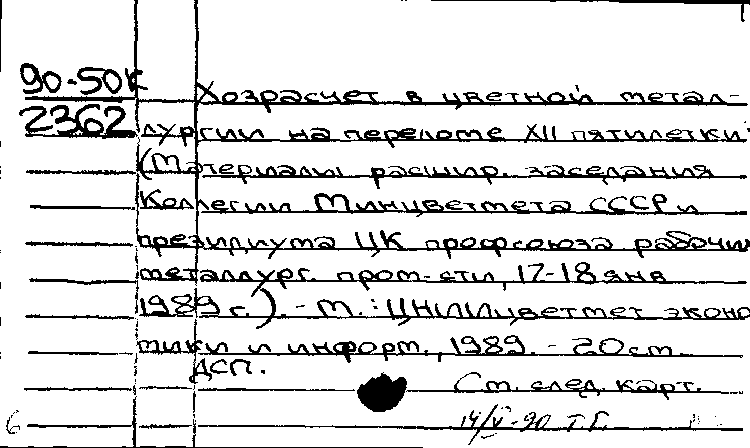 90-50к
2362
Хозрасчет в цветной метал-
лургии на переломе XII пятилетки:
(Материалы расшир. заседания
Коллегии Минцветмета СССР и
президиума ЦК профсоюза рабочих
металлург. пром-сти, 17-18 янв
1989 г.). - М.: ЦНИИцветмет эконо
мики и информ., 1989. - 20 см.
ДСП.
См. след. карт.
6
14/V-90 Т.Г.